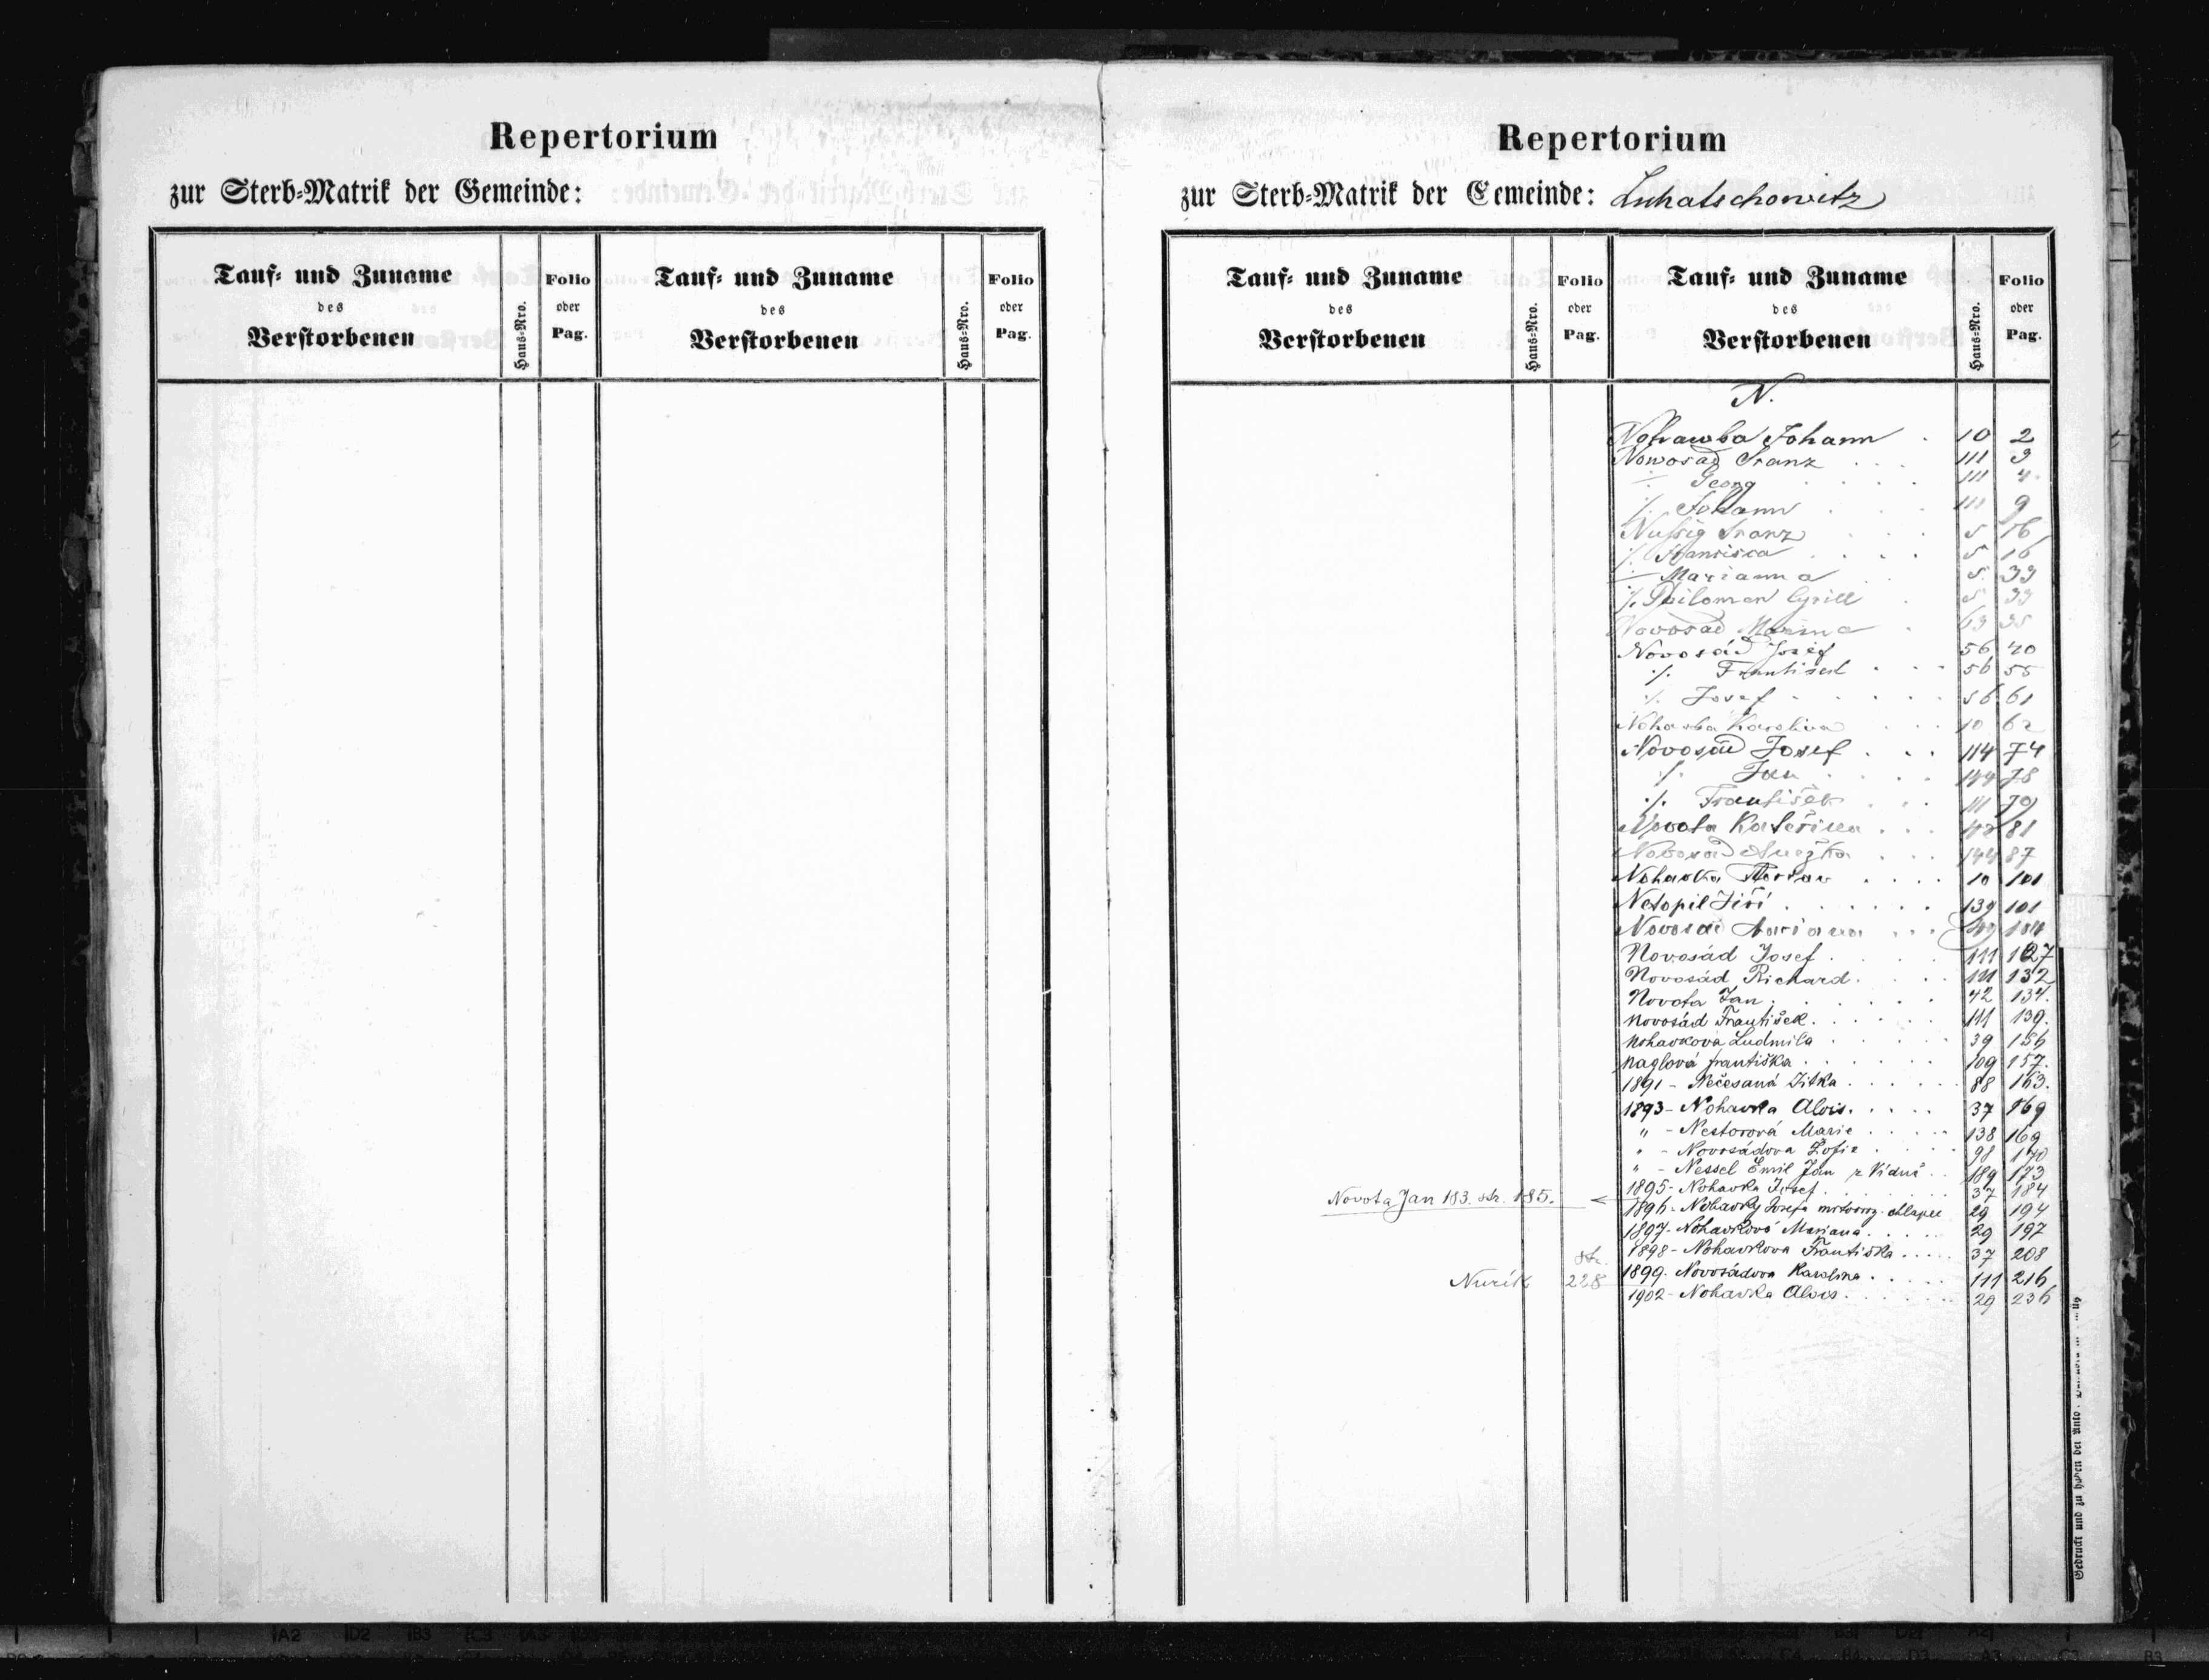 Repertorium
zur Sterb-Matrik der Gemeinde:
Tauf- und Zuname des Verstorbenen
Haus-Nro.
Folio oder Pag.
Tauf- und Zuname des Verstorbenen
Haus-Nro.
Folio oder Pag.
Repertorium
zur Sterb-Matrik der Gemeinde: Luhatschowitz
Tauf- und Zuname des Verstorbenen
Haus-Nro.
Folio oder Pag.
Tauf- und Zuname des Verstorbenen
Haus-Nro.
Folio oder Pag.
N.
Nohawka Johann . 10 2
Nowosad Franz . . . 111 3
-/. Georg . . . . 111 4.
-/. Johann . . . 111 9
Nussig Franz . . . 5 16
./. Francisca . . . . 5 16
-/. Marianna . . 5. 33
./. Cyrill . 5 33
Novosad . 63 35
Novosád Josef 56 40
./. František . . . 56 55
./. Josef . . . . . 56 61
Nohavka Karolina . . . 10 62
Novosád Josef . . . 114 74
./. Jan . . . . 144 78
./. František . . . 111 79
Novota Kateřina . . . 42 81
Novosad Anežka . . . 144 87
Nohavka Florian . . . . 10 101
Netopil Jiří . . . . . . 139 101
Novosád Mariana . . . 104
Novosád Josef . . . . . 111 127
Novosád Richard . . . . 111 132
Novota Jan . . . . . . 42 134.
Novosád František . . . . . 111 139.
Nohavková Ludmila . . . . . 39 156
Naglová Františka . . . . . . 109 157.
1891 - Nečesaná Jitka . . . . . 88 163.
1893 - Nohavka Alois . . . . . 37 169
" - Nestorová Marie . . . . . 138 169
" - Novosádova Žofie . . . . 98 170
" - Nessel Emil Jan z Vídně . . 189 173
1895 - Nohavka Josef . . . . . . 37 184
Novota Jan 183. str. 185. ←
1896 - Nohavky Josefa mrtvoroz. chlapec 29 194
1897 - Nohavková Mariana . . . . . 29 197
1898 - Nohavkova Františka . . . . . 37 208
str.
Nurík 228
1899. Novosádova Karolina . . . . . 111 216
1902 - Nohavka Alois . . . . . . . 29 236
Gedruckt und zu haben bei